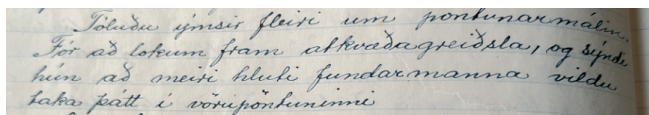 Töluðu ýmsir fleiri um pöntunarmálin.
Fór að lokum fram atkvæðagreiðsla, og sýndi
hún að meiri hluti fundarmanna vildu
taka þátt í vörupöntuninni